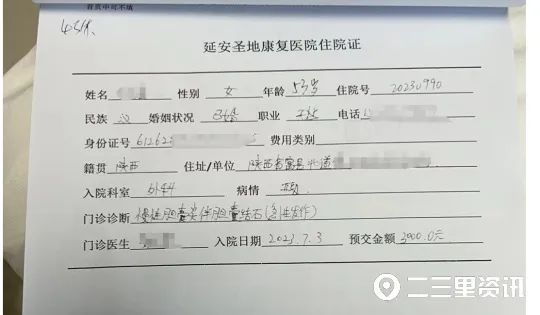 首页中可不填
延安圣地康复医院住院证
姓名 性别 女 年龄 53岁 住院号 20230990
民族 汉 婚姻状况 已婚 职业 电话
身份证号 61262 费用类别
籍贯 陕西 住址/单位 陕西省富县
入院科室 外科 病情
门诊诊断 慢性胆囊炎伴胆囊结石(急性发作)
门诊医生 入院日期 2023.7.3 预交金额 3000.0元
二三里资讯